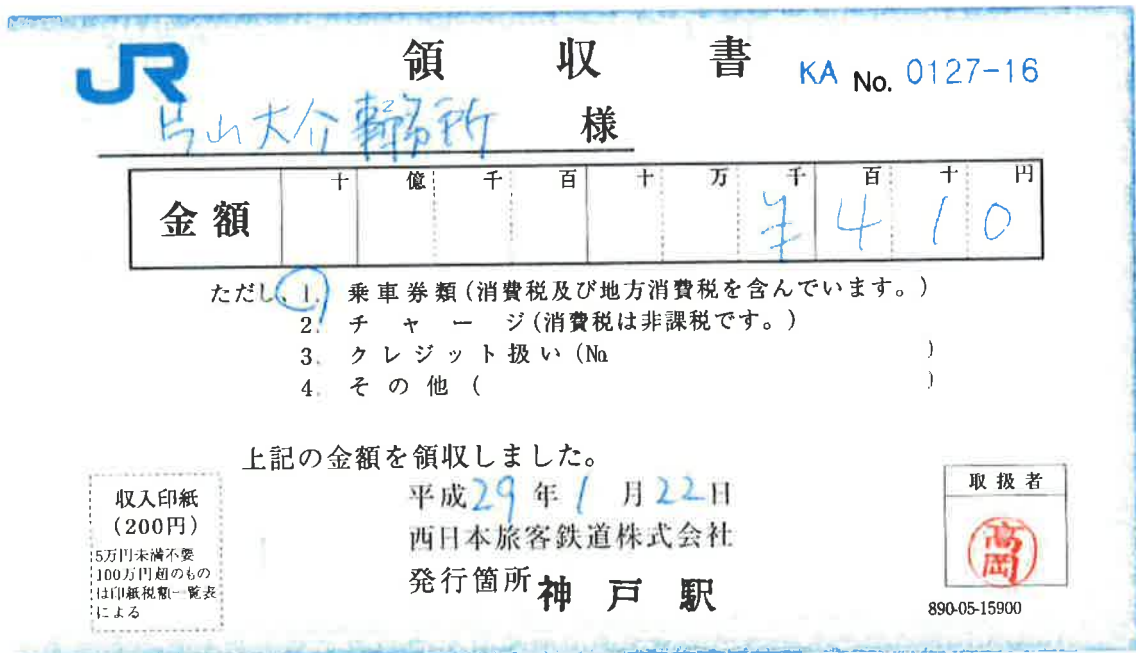 JR 領収書 KA No. 0127-16
片山大介事務所 様
金額 十 億 千 百 十 万 千 百 十 円
¥410
ただし、1. 乗車券類(消費税及び地方消費税を含んでいます。)
2. チャージ(消費税は非課税です。)
3. クレジット扱い(No. )
4. その他( )
上記の金額を領収しました。
平成29年1月22日
西日本旅客鉄道株式会社
発行箇所 神戸駅
収入印紙
(200円)
5万円未満不要
100万円超のもの
は印紙税額一覧表
による
取扱者
高岡
890-05-15900